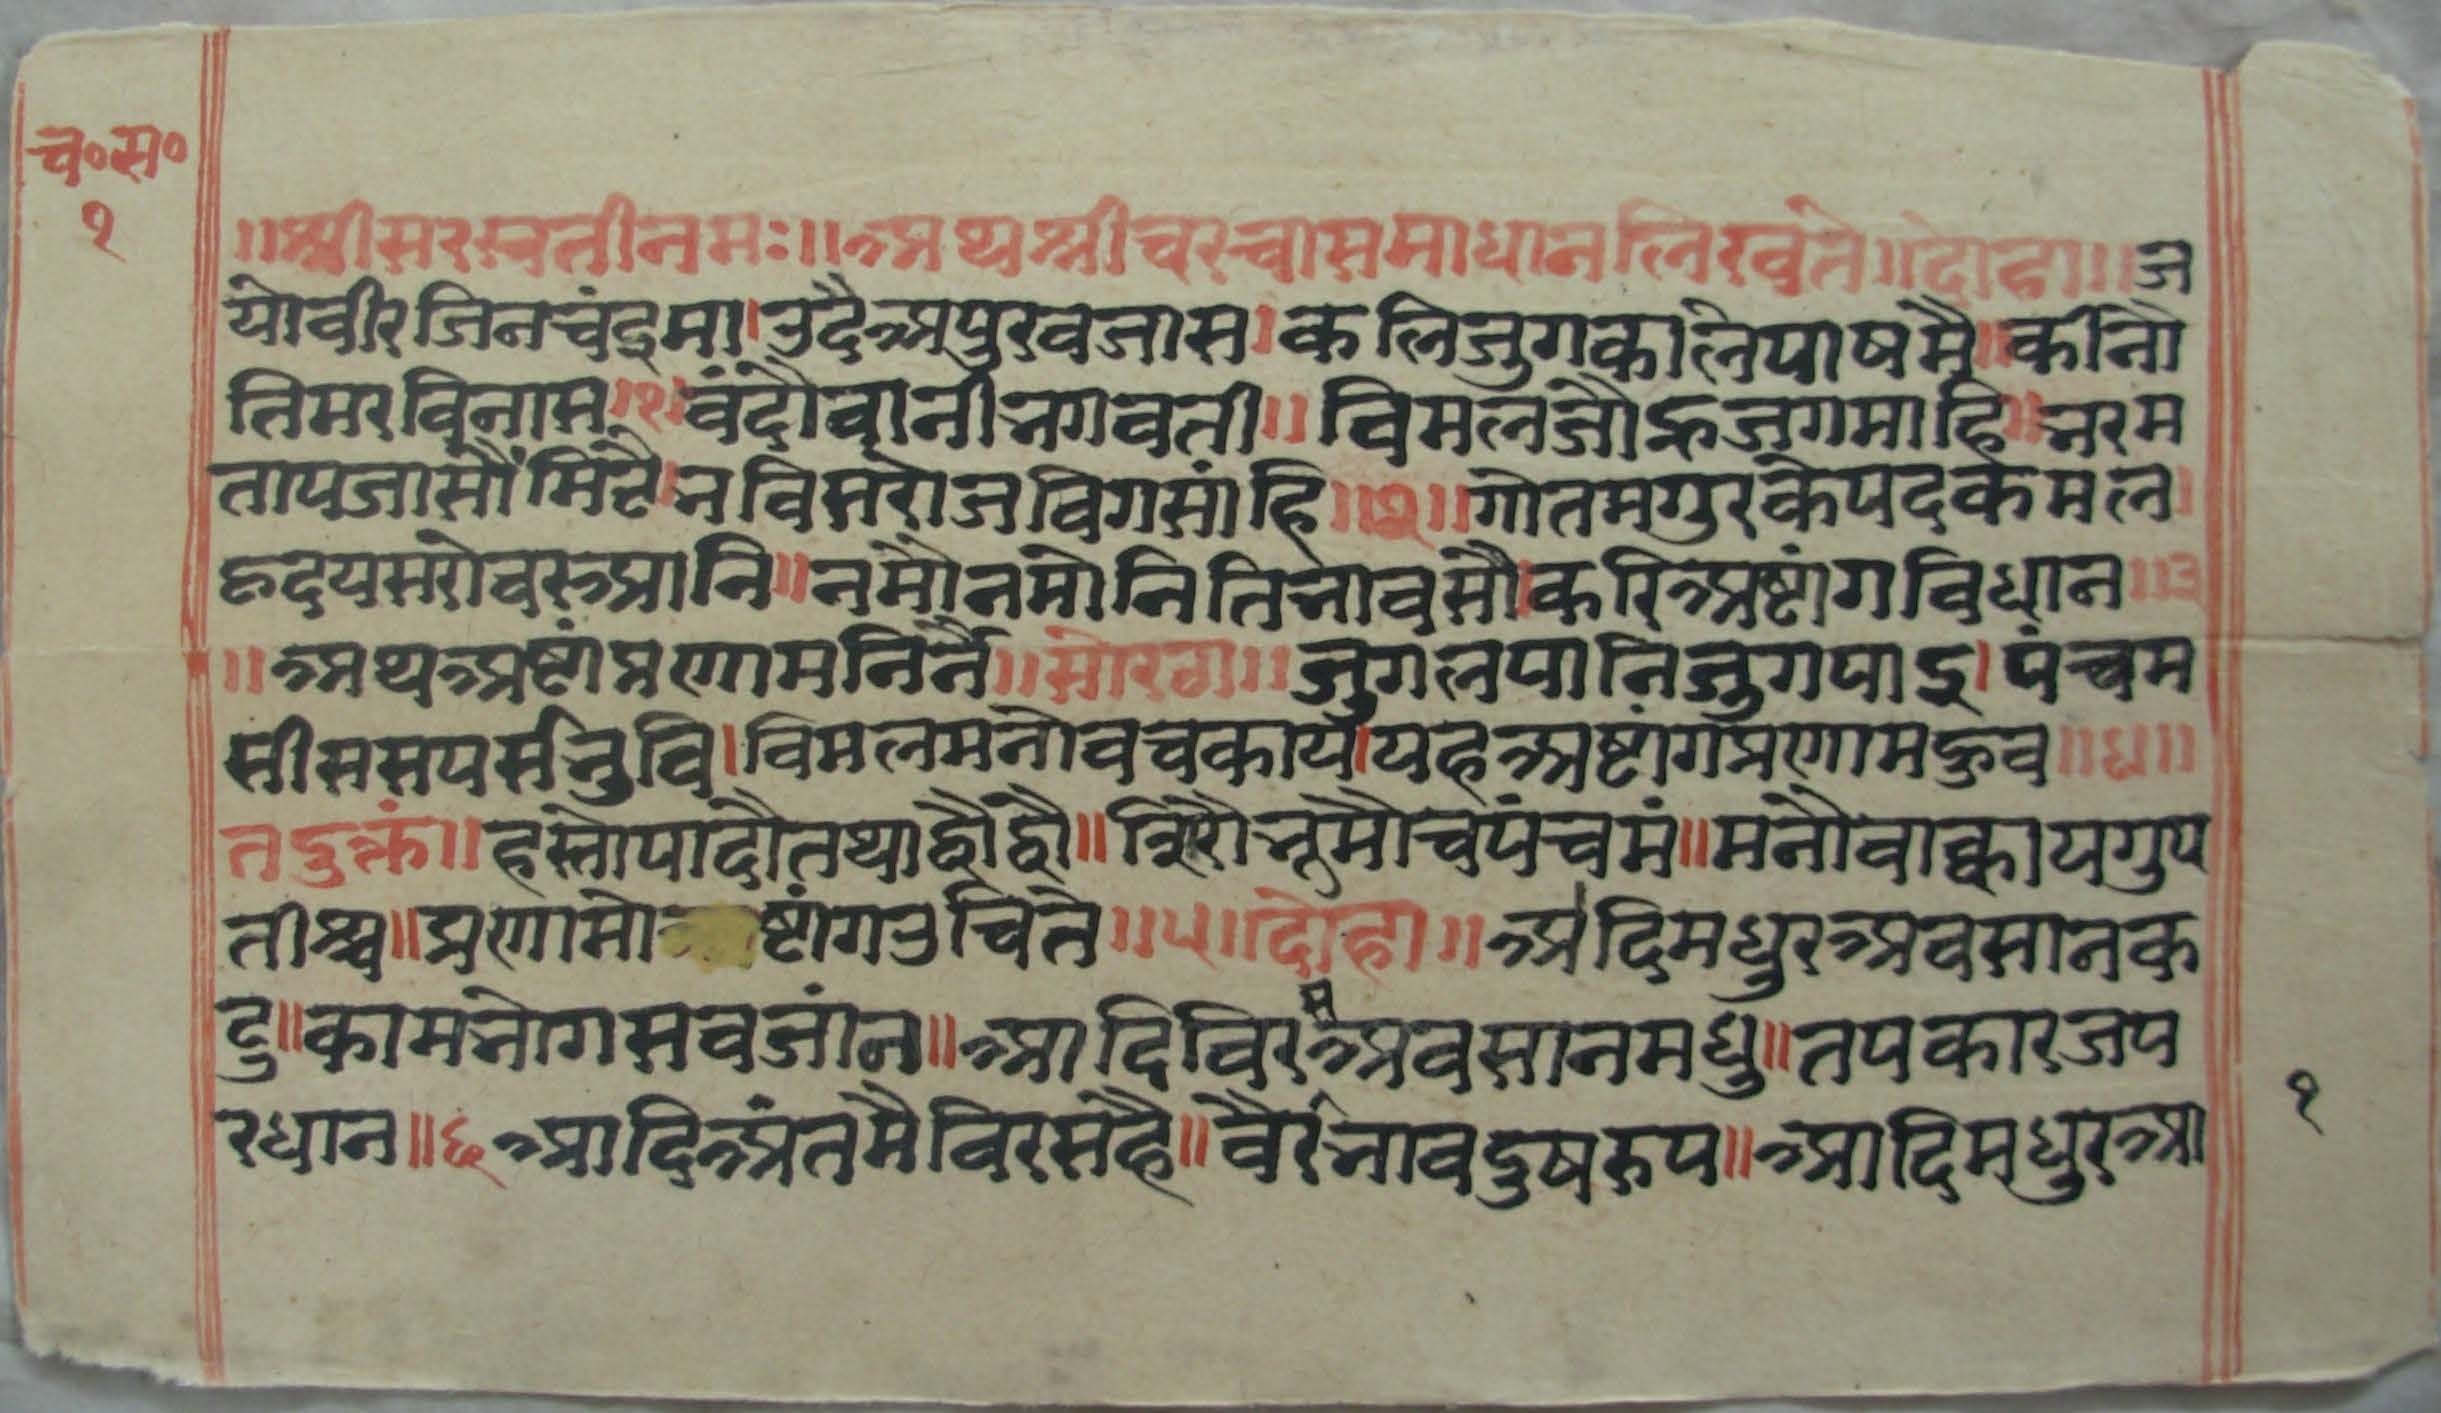 च०स०
१
॥श्रीसरस्वतीनमः॥अथश्रीचरचासमाधानलिख्यते॥दोहा॥ज
योवीरजिनचंद्रमा।उदैअपुरवजास।कलिजुगकालेपाषमै॥कीनो
तिमरविनास॥१॥वंदौवानीभगवती॥विमलजौन्हजगमाहि॥भरम
तापजासौंमिटै।भविसरोजविगसांहि॥२॥गोतमगुरकेपदकमल।
हृदयसरोवरुप्रानि॥नमौनमोनितिभावसौ।करिअष्टांगविधान॥३
॥अथअष्टांप्रणामनिर्नै॥सोरठा॥जुगलपानिजुगपाइ।पंच्चम
सीससपर्सभुवि।विमलमनोवचकाय।यहअष्टांगप्रणामकुव॥४॥
तदुक्तं॥हस्तोपादौतथाद्वौद्वौ॥शिरोभूमौचपंचमं॥मनोवाक्कायगुप
तीश्च॥प्रणामोअष्टांगउचिते॥५॥दोहा॥आदिमधुरअवसानक
टु॥कामभोगसवजांन॥आदिविरसअवसानमधु॥तपकारजप
रधान॥६आदिअंतमैविरसहै॥वैरभावदुषरुप॥आदिमधुरआ
१